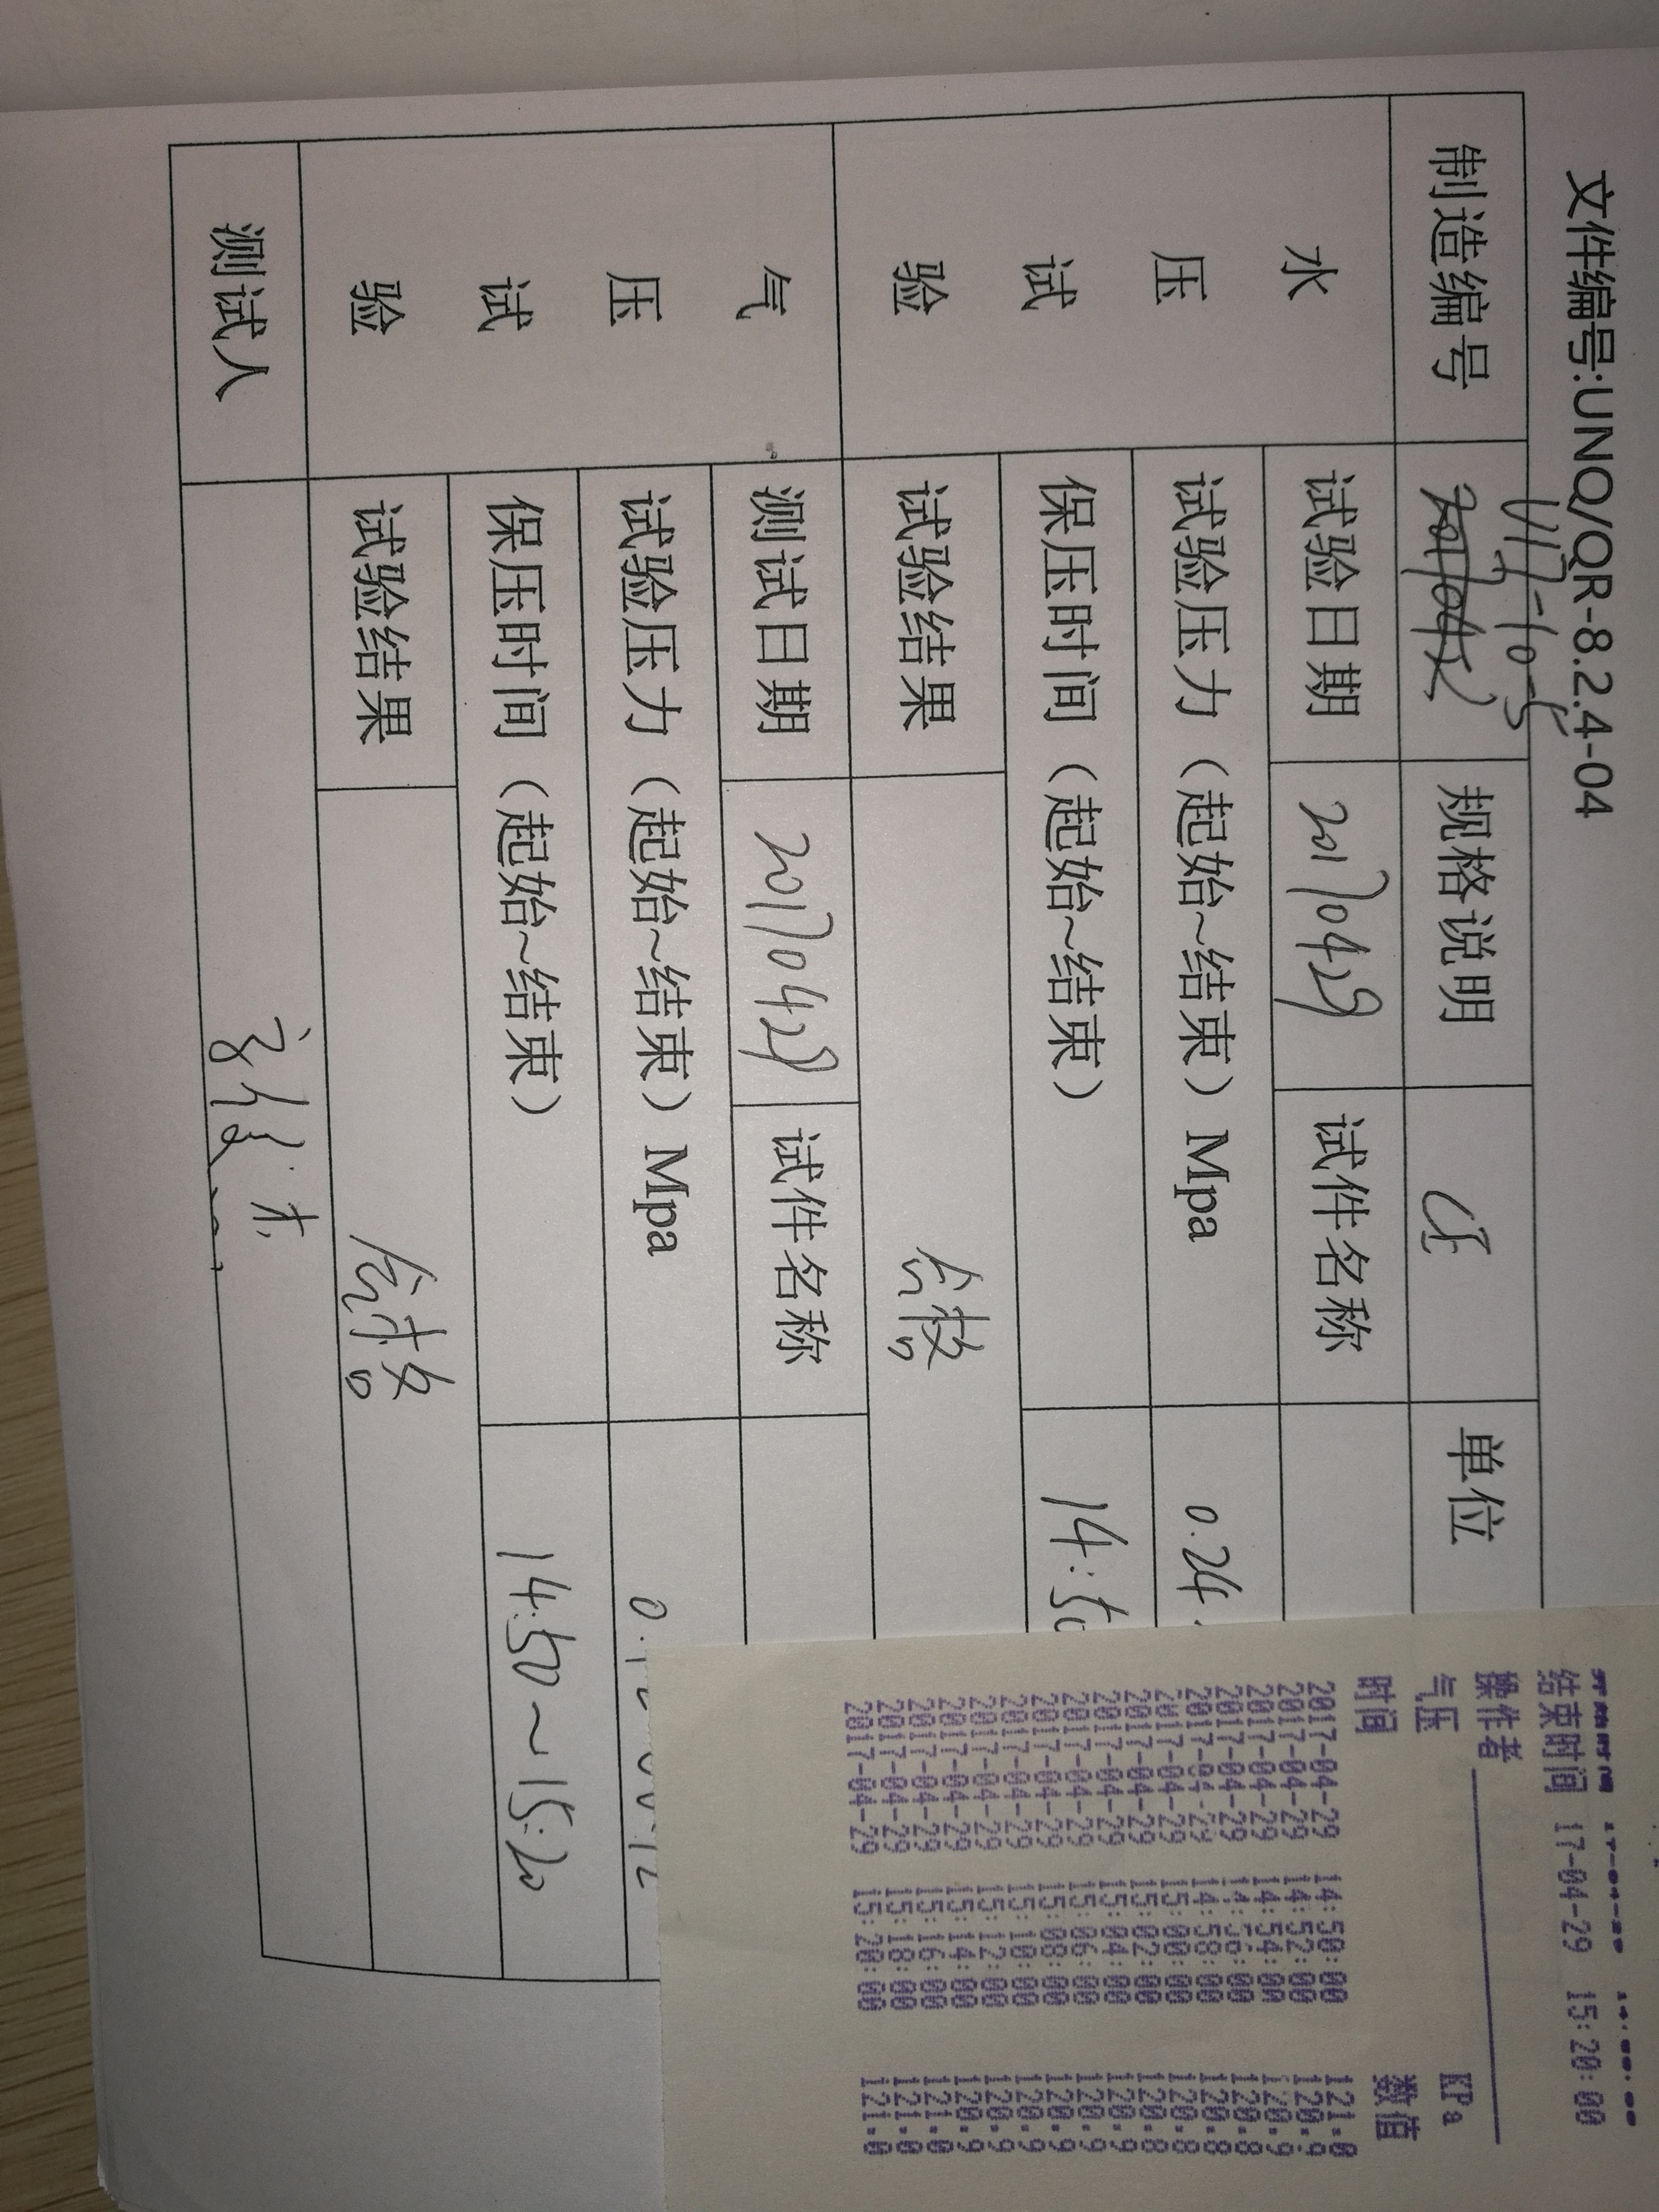 文件编号:UNQ/QR-8.2.4-04
制造编号 U17-10-5 规格说明 CE 单位
水压试验
试验日期 20170429 试件名称
试验压力（起始~结束）Mpa 0.24
保压时间（起始~结束） 14:50
试验结果 合格
气压试验
测试日期 20170429 试件名称
试验压力（起始~结束）Mpa
保压时间（起始~结束） 14:50~15:20
试验结果 合格
测试人
结束时间 17-04-29 15:20:00
操作者
气压 KPa
时间 数值
2017-04-29 14:50:00 121.0
2017-04-29 14:52:00 120.9
2017-04-29 14:54:00 120.9
2017-04-29 14:56:00 120.8
2017-04-29 14:58:00 120.8
2017-04-29 15:00:00 120.8
2017-04-29 15:02:00 120.8
2017-04-29 15:04:00 120.9
2017-04-29 15:06:00 120.9
2017-04-29 15:08:00 120.9
2017-04-29 15:10:00 120.9
2017-04-29 15:12:00 120.9
2017-04-29 15:14:00 120.9
2017-04-29 15:16:00 121.0
2017-04-29 15:18:00 121.0
2017-04-29 15:20:00 121.0